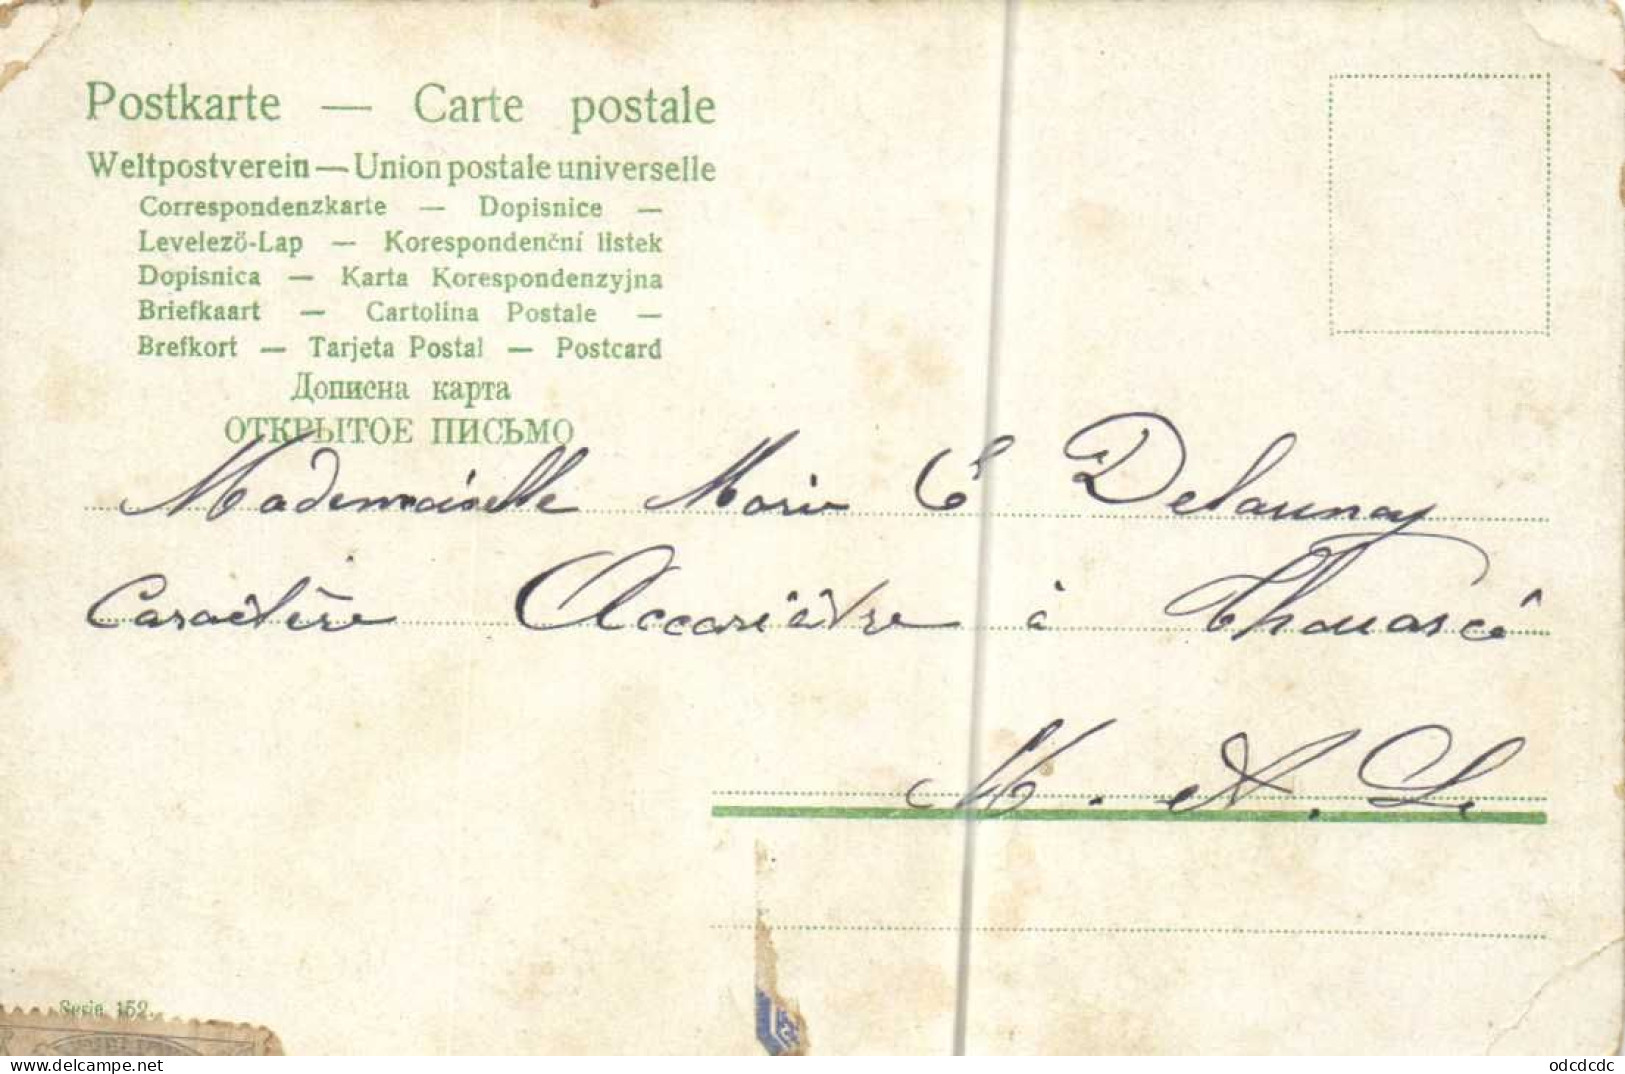 Postkarte — Carte postale
Weltpostverein — Union postale universelle
Correspondenzkarte — Dopisnice —
Levelező-Lap — Korespondenční lístek
Dopisnica — Karta Korespondenzyjna
Briefkaart — Cartolina Postale —
Brefkort — Tarjeta Postal — Postcard
Дописна карта
ОТКРЫТОЕ ПИСЬМО
Mademoiselle Marie C Delaunay
à Thouarcé
M. A. L.
Serie 152.
www.delcampe.net
odcdcdc